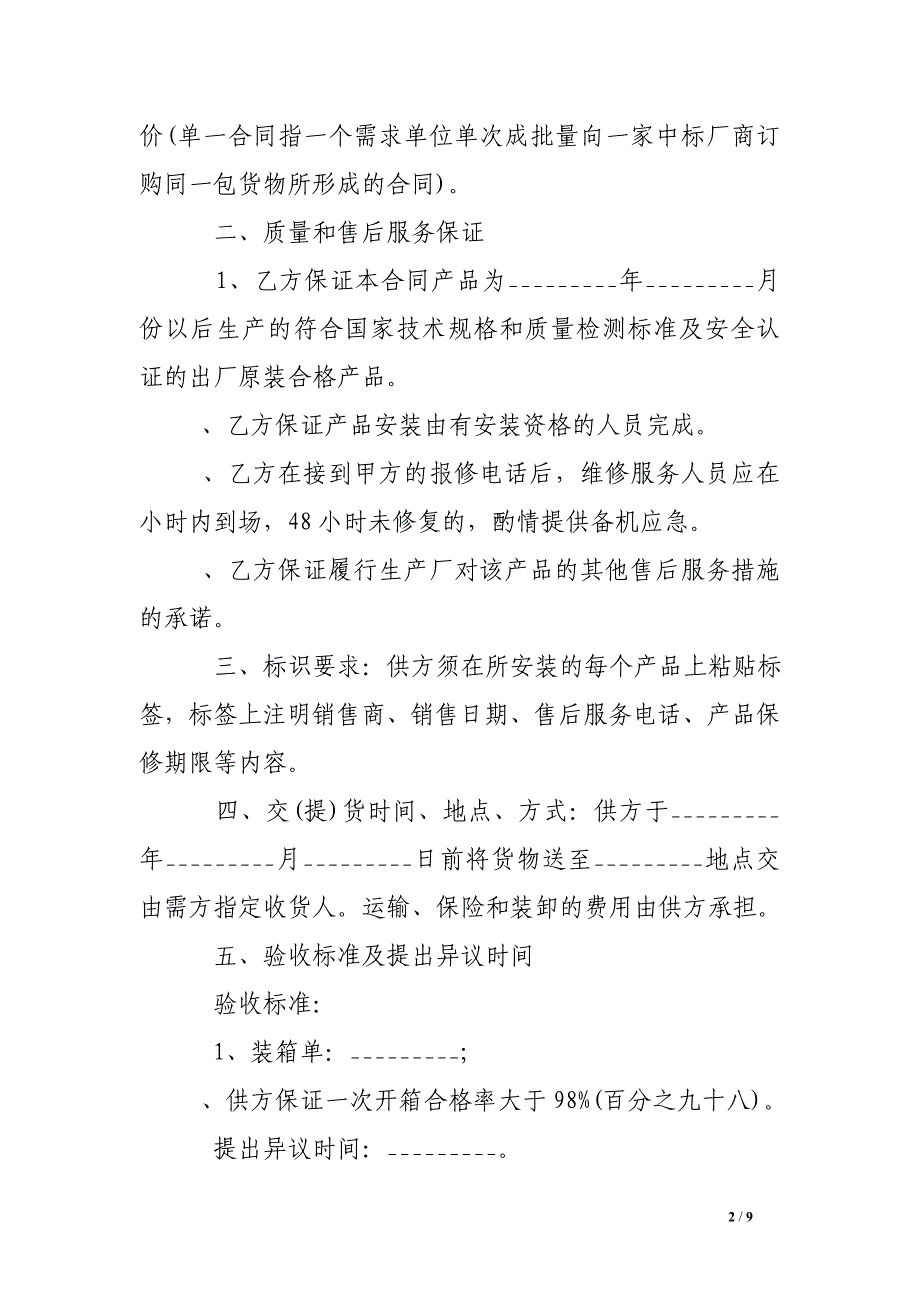 价(单一合同指一个需求单位单次成批量向一家中标厂商订
购同一包货物所形成的合同)。
二、质量和售后服务保证
1、乙方保证本合同产品为_________年_________月
份以后生产的符合国家技术规格和质量检测标准及安全认
证的出厂原装合格产品。
、乙方保证产品安装由有安装资格的人员完成。
、乙方在接到甲方的报修电话后，维修服务人员应在
小时内到场，48 小时未修复的，酌情提供备机应急。
、乙方保证履行生产厂对该产品的其他售后服务措施
的承诺。
三、标识要求：供方须在所安装的每个产品上粘贴标
签，标签上注明销售商、销售日期、售后服务电话、产品保
修期限等内容。
四、交(提)货时间、地点、方式：供方于_________
年_________月_________日前将货物送至_________地点交
由需方指定收货人。运输、保险和装卸的费用由供方承担。
五、验收标准及提出异议时间
验收标准：
1、装箱单：_________;
、供方保证一次开箱合格率大于 98%(百分之九十八)。
提出异议时间：_________。
2 / 9